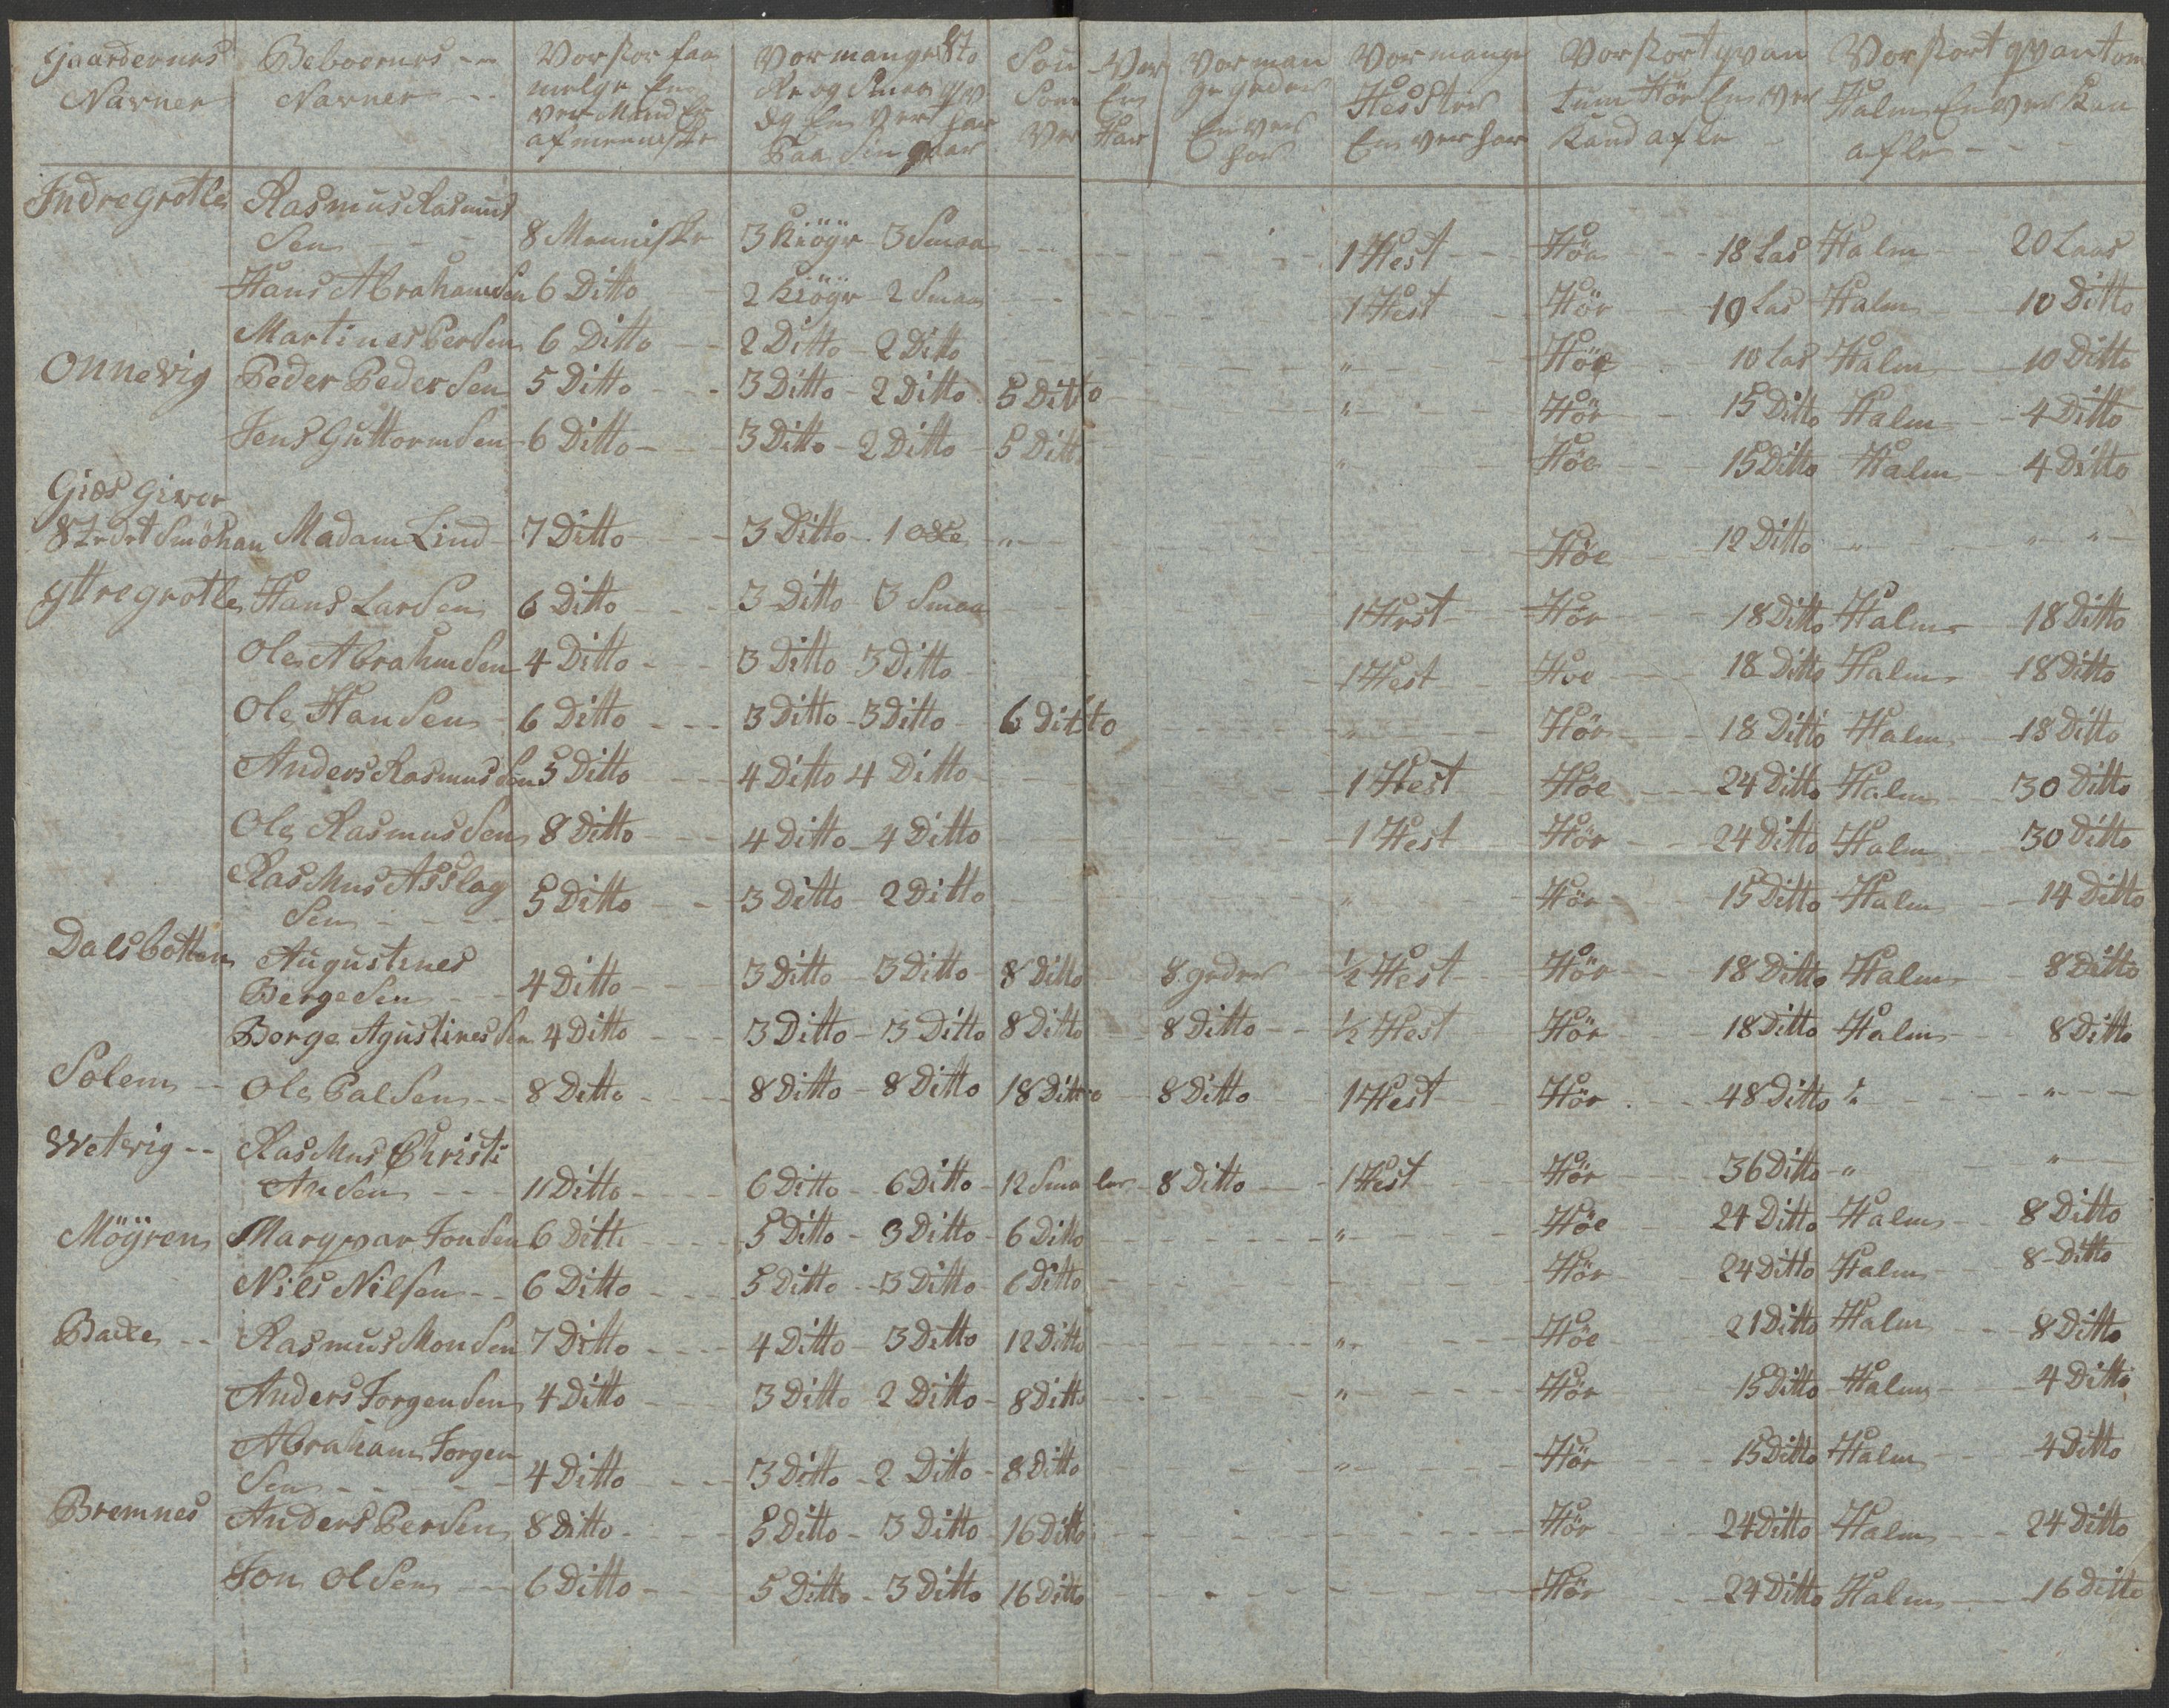 Gaardernes Navner | Beboernes Navner | Vorstor faamelge En ver Mand Er af menniske | Vor mange Sto Re og Smaa qvæg En Ver har Paa Sin gaar | Sou Som Ver Ver En Har | Vor mange geder En ver har | Vor mange Hester En ver har | Vor stort qvantum Hör En ver Kand afle | Vor stort qvantom Halm En ver Kan afle
Indregrotle | Rasmus Rasmus
Sen | 8 Menniske | 3 Kiöyr - 3 Smaa | 1 Hest | Hör 18 Las | Halm 20 Laas
Hans Abrahamsen | 6 Ditto | 2 Kiöyr - 2 Smaa | 1 Hest | Hör 10 Las | Halm 10 Ditto
Martines PerSen | 6 Ditto | 2 Ditto - 2 Ditto | " | Höe 10 Las | Halm 10 Ditto
Onnevig | Peder PederSen | 5 Ditto | 3 Ditto - 2 Ditto | 5 Ditto | " | Hör 15 Ditto | Halm 4 Ditto
Jens GuttormSen | 6 Ditto | 3 Ditto - 2 Ditto | 5 Ditt | " | Höe 15 Ditto | Halm 4 Ditto
Gies Giver
Stedet Smöhan | Madam Lind | 7 Ditto | 3 Ditto - 1 oxe | " | Höe 12 Ditto | " "
Yttregrotle | Hans LarSen | 6 Ditto | 3 Ditto - 3 Smaa | 1 Hest | Hör 18 Ditto | Halm 18 Ditto
Ole AbrahmSen | 4 Ditto | 3 Ditto 3 Ditto | 1 Hest | Hoe 18 Ditto | Halm 18 Ditto
Ole HanSen | 6 Ditto | 3 Ditto - 3 Ditto | 6 Ditto | " | Hör 18 Ditto | Halm 18 Ditto
Anders RasmusSen | 5 Ditto | 4 Ditto 4 Ditto | 1 Hest | Höe 24 Ditto | Halm 30 Ditto
Ole RasmusSen | 8 Ditto | 4 Ditto - 4 Ditto | 1 Hest | Hör 24 Ditto | Halm 30 Ditto
RasMus Asslag
Sen | 5 Ditto | 3 Ditto - 2 Ditto | " | Hör 15 Ditto | Halm 14 Ditto
Dalsbotten | Augustines
BergeSen | 4 Ditto | 3 Ditto - 3 Ditto | 8 Ditto | 8 geder | 1/2 Hest | Hör 18 Ditto | Halm 8 Ditto
Borge AgustinesSen | 4 Ditto | 3 Ditto - 3 Ditto | 8 Ditto | 8 Ditto | 1/2 Hest | Hör 18 Ditto | Halm 8 Ditto
Solem | Ole PalSen | 8 Ditto | 8 Ditto - 8 Ditto | 18 Ditto | 8 Ditto | 1 Hest | Hör 48 Ditto | " "
Wetvig | RasMus Christi
AnSen | 11 Ditto | 6 Ditto - 6 Ditto | 12 Smaler | 8 Ditto | 1 Hest | Hör 36 Ditto | " "
Möÿren | Marqvar JonSen | 6 Ditto | 5 Ditto - 3 Ditto | 6 Ditto | " | Höe 24 Ditto | Halm 8 Ditto
Nils Nilsen | 6 Ditto | 5 Ditto - 3 Ditto | 6 Ditto | Hör 24 Ditto | Halm 8 Ditto
Backe | Rasmus MonSen | 7 Ditto | 4 Ditto - 3 Ditto | 12 Ditto | " | Höe 21 Ditto | Halm 8 Ditto
Anders JorgenSen | 4 Ditto | 3 Ditto 2 Ditto | 8 Ditto | " | Hör 15 Ditto | Halm 4 Ditto
Abraham Jorgen
Sen | 4 Ditto | 3 Ditto - 2 Ditto | 8 Ditto | " | Hör 15 Ditto | Halm 4 Ditto
Bremnes | Anders PerSen | 8 Ditto | 5 Ditto - 3 Ditto | 16 Ditto | Hör 24 Ditto | Halm 24 Ditto
Jon OlSen | 6 Ditto | 5 Ditto - 3 Ditto | 16 Ditto | Hör 24 Ditto | Halm 16 Ditto